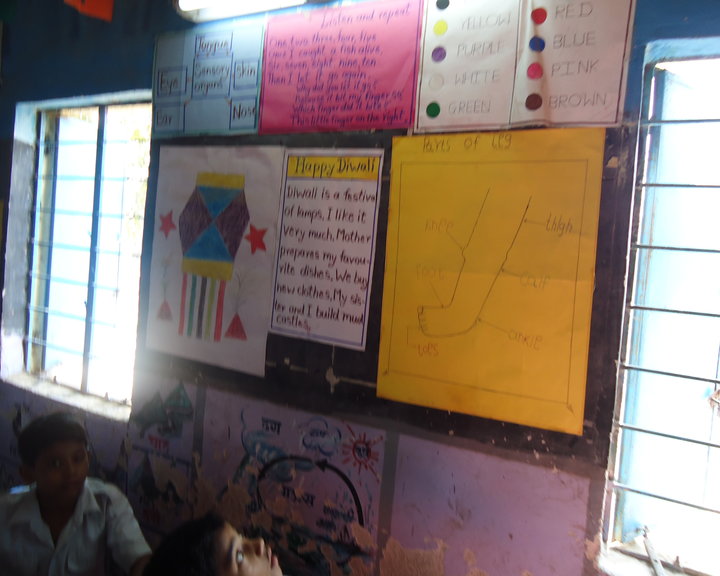 Listen and repeat
One two three, four, five
Once I caught a fish alive,
six, seven, eight, nine, ten
Then I let it go again.
Why did you let it go?
Because it bit my finger so
Which finger did it bite?
This little finger on the right.
Tongue
Eye
Sensory
organs
Skin
Ear
Nose
YELLOW
PURPLE
WHITE
GREEN
RED
BLUE
PINK
BROWN
Happy Diwali
Diwali is a festival
of lamps. I like it
very much. Mother
prepares my favou-
rite dishes. We buy
new clothes. My sis-
ter and I build mud
castles.
Parts of leg
knee
thigh
foot
calf
toes
ankle